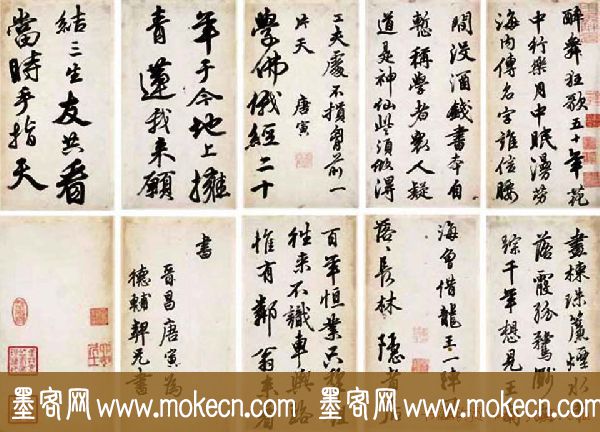 醉舞狂歌五十年花
中行樂月中眠漫勞
海内傳名字誰信腰
間沒酒錢書本自
慙稱學者衆人疑
道是神仙些須做得
工夫處不損胷前一
片天 唐寅
學佛俄經二十
年于今地上擁
青蓮我來願
結三生友共看
當時手指天
畫棟珠簾煙水
落霞孤鶩
踪千年想見王
海曾借龍王一陣
落〻長林隱者
百年恒業只
往來不識車輿路
惟有鄰翁來看
書
晉昌唐寅為
德輔契兄書
墨客网 www.mokecn.com 墨客网 www.mokecn.com